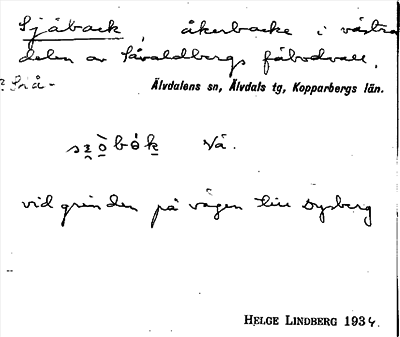 Sjåback, åkerbacke i västra
delen av Såvaldbergs fäbodvall.
? Snå-
Älvdalens sn, Älvdals tg, Kopparbergs län.
Vä.
vid grinden på vägen till Dysberg
HELGE LINDBERG 1934.